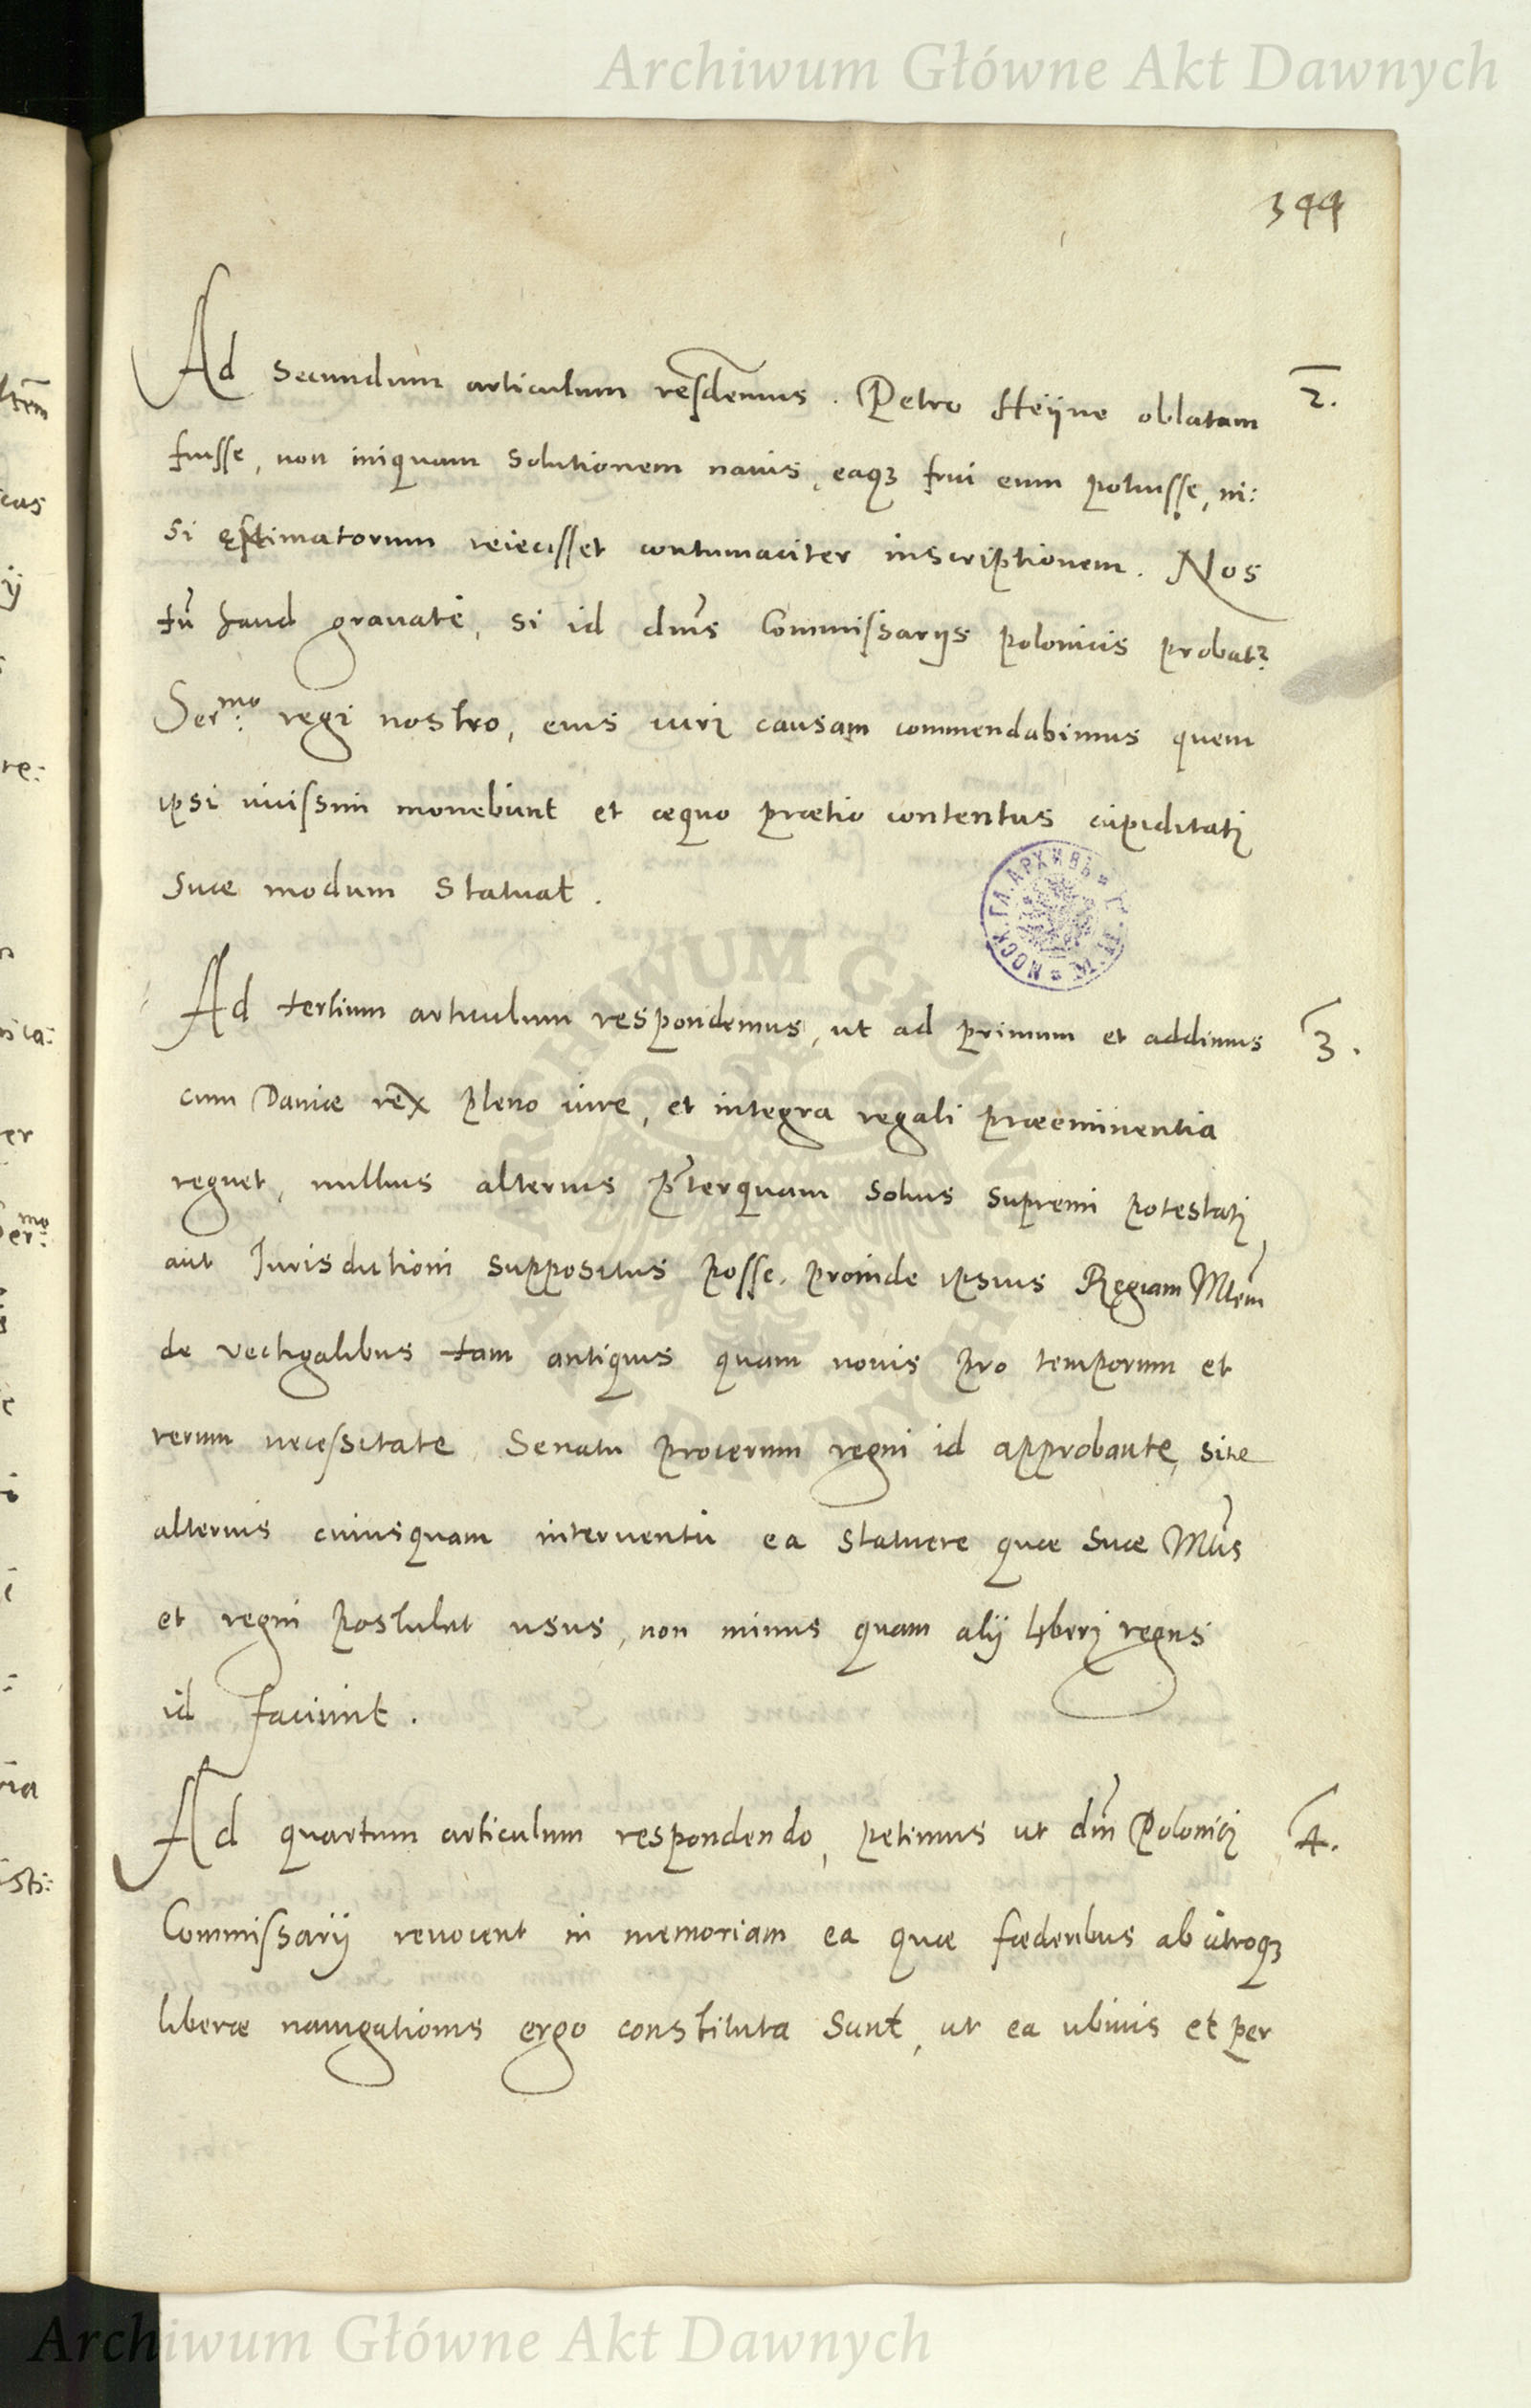 Archiwum Główne Akt Dawnych
344
Ad secundum articulum resdemus. Petro Heijne oblatam 2.
fuisse, non iniquam solutionem nauis, eaqꝫ frui eum potuisse, ni:
si ęstimatorum reiecisset contumaciter inscriptionem. Nos
tn̄ haud grauatè, si id dnīs Commissarijs polonicis probatꝛ
Ser:mo regi nostro, eius iuris causam commendabimus quem
ipsi uicissim monebunt et æquo prætio contentus cupiditati
suæ modum statuat.
МОСК. ГЛ. АРХИВЪ
Ad tertium articulum respondemus, ut ad primum et addimus 3.
cum Daniæ rex pleno iure, et integra regali præeminentia
regnet, nullius alterius p̄terquam solius supremi potestati
aut Jurisdictioni suppositus posse. proinde ipsius Regiam Mtem̄
de vectigalibus tam antiquis quam nouis pro temporum et
rerum necessitate Senatu procerum regni id approbante, sine
alterius cuiusquam interuentu ea statuere quæ suæ Mtīs
et regni postulat usus, non minus quam alij liberi reges
id faciunt.
Ad quartum articulum respondendo, petimus ut dnī Polonici 4.
Commissarij reuocent in memoriam ea quæ fœderibus ab utroqꝫ
liberæ nauigationis ergo constituta sunt, ut ea ubiuis et per
ARCHIWUM GŁÓWNE AKT DAWNYCH
Archiwum Główne Akt Dawnych